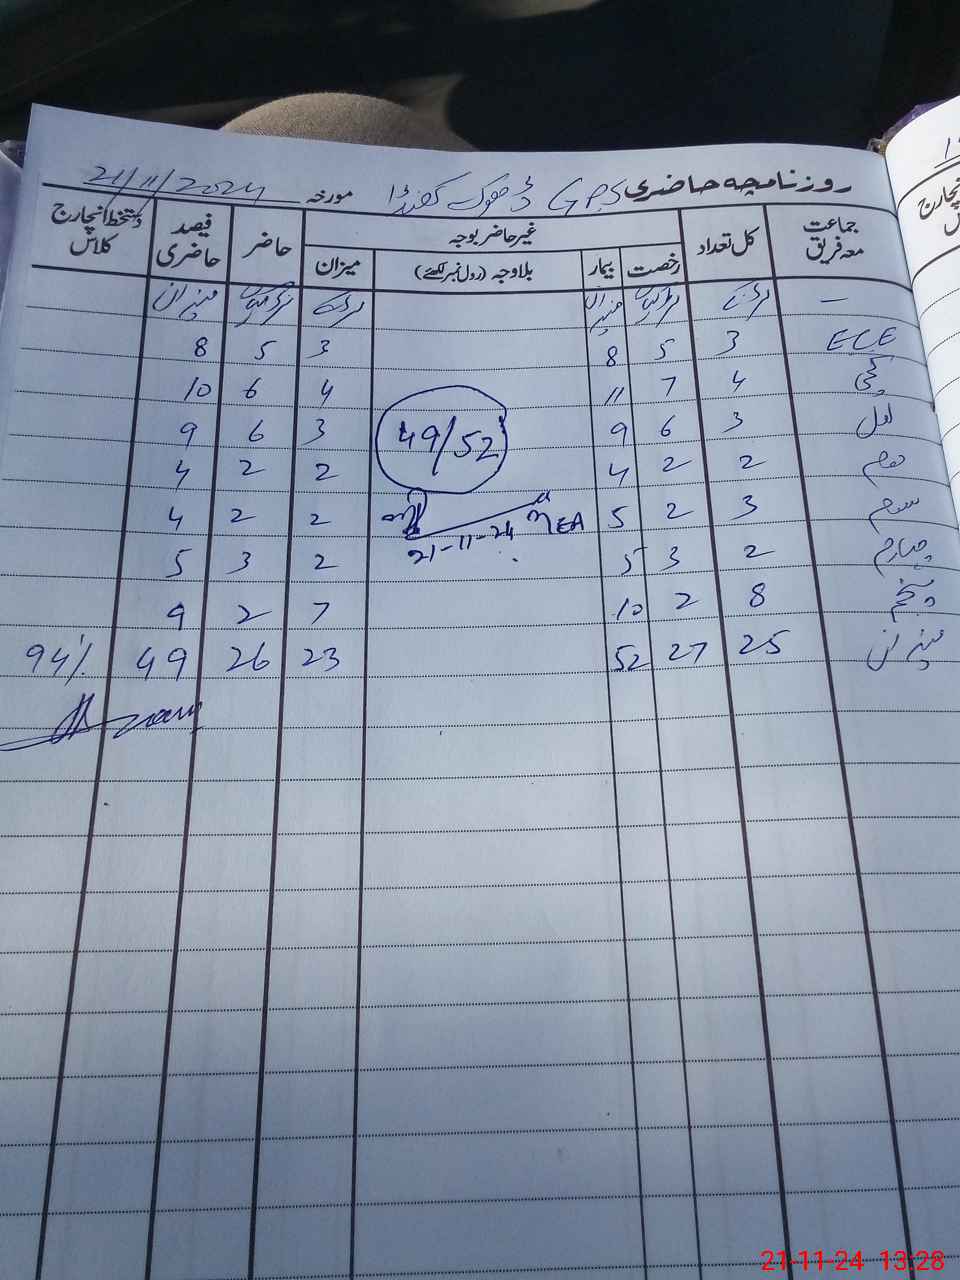 روزنامچہ حاضری GPS ڈھوک کھنڈا مورخہ 21/11/2024
جماعت معہ فریق کل تعداد غیر حاضر بوجہ حاضر فیصد حاضری دستخط انچارج کلاس
رخصت بیمار بلاوجہ (رول نمبر لکھئے) میزان
— لڑکے لڑکیاں میزان لڑکے لڑکیاں میزان
ECE 3 5 8 3 5 8
کچی 4 7 11 4 6 10
اول 3 6 9 3 6 9
دوم 2 2 4 2 2 4
سوم 3 2 5 2 2 4
چہارم 2 3 5 2 3 5
پنجم 8 2 10 7 2 9
میزان 25 27 52 23 26 49 94%
49/52
MEA
21-11-24
انچارج
21-11-24 13:28